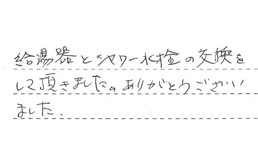 給湯器とシャワー水栓の交換を
して頂きました。ありがとうござい
ました。